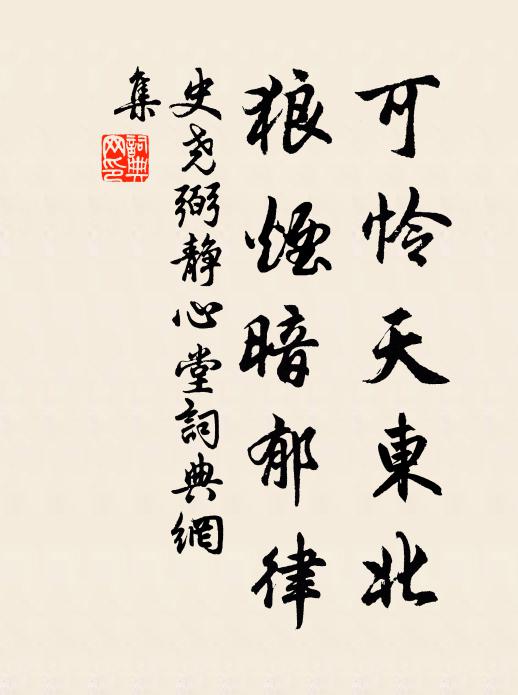 可怜天東北
狼煙暗郁律
史尧弼静心堂詞典網
集
詞典网印